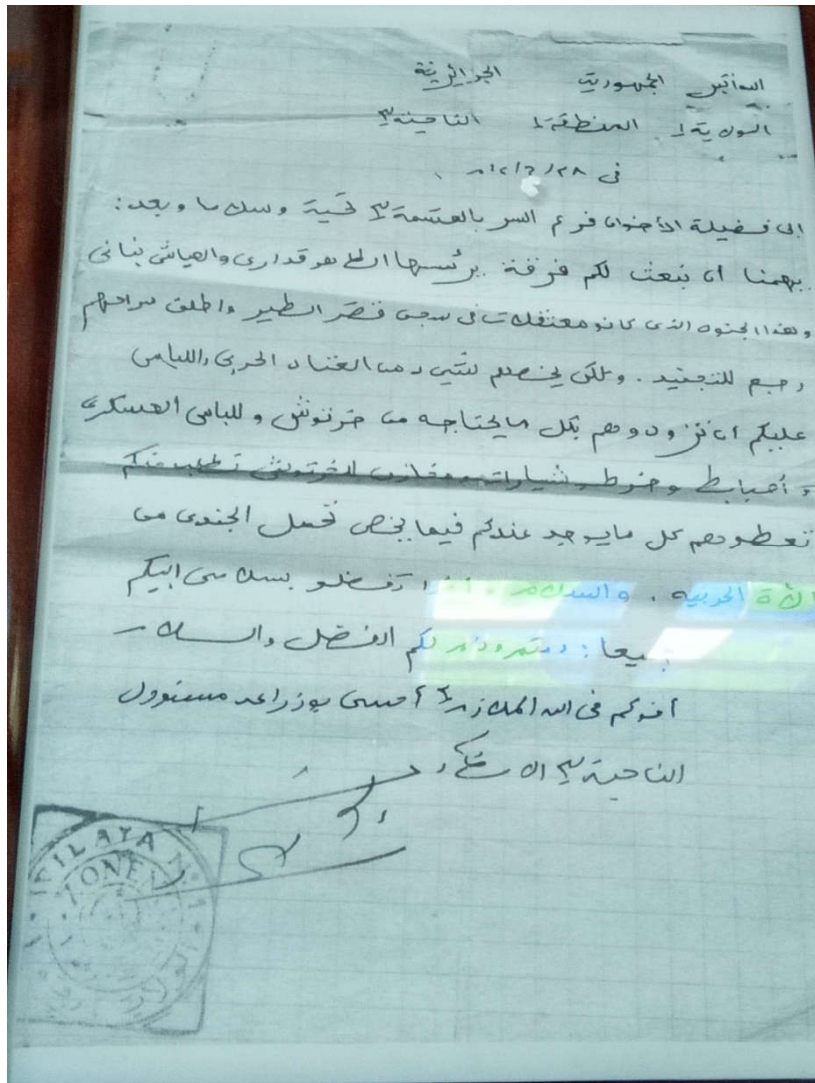 الجمهورية الجزائرية
الولاية 1 المنطقة 1 الناحية 3
في
إلى فضيلة الأخوان فرع السر بالقسمة تحية وسلاما وبعد:
يهمنا ان نبعث لكم فرقة يرئسها الطاهر قداري والعياشي بناني
وهذا الجنود الذي كانو معتقلات في سجن قصر الطير واطلق سراحهم
رجع للتجنيد. ولكن يخصهم شيء من العتاد الحربي واللباس
عليكم ان تزودوهم بكل مايحتاجه من خرتوش و للباس العسكري
و أصباط وخوط للخرتوش تطلب منكم
تعطوهم كل مايوجد عندكم فيما يخص تحمل الجندي من
الحربيه. والسلام تفضلو بسلامي اليكم
لكم الفضل والسلام
أخوكم في الله الملازم أعيسى بوزراعه مسئوول
الناحية 3
WILAYA N.1
ZONE